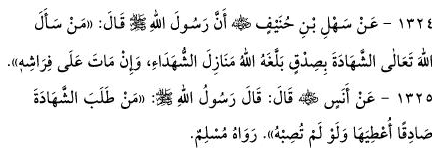 ١٣٢٤ - عَنْ سَهْلِ بْنِ حُنَيْفٍ ﷺ أَنَّ رَسُولَ اللهِ ﷺ قَالَ: «مَنْ سَأَلَ
اللهَ تَعَالَى الشَّهَادَةَ بِصِدْقٍ بَلَّغَهُ اللهُ مَنَازِلَ الشُّهَدَاءِ، وَإِنْ مَاتَ عَلَى فِرَاشِهِ».
١٣٢٥ - عَنْ أَنَسٍ ﷺ قَالَ: قَالَ رَسُولُ اللهِ ﷺ: «مَنْ طَلَبَ الشَّهَادَةَ
صَادِقًا أُعْطِيَهَا وَلَوْ لَمْ تُصِبْهُ». رَوَاهُ مُسْلِمٌ.